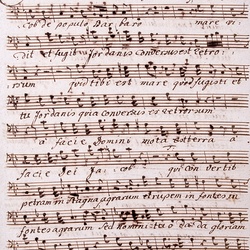 cob de populo Barbaro mare vi
dit et fugit Jordanis conversus est retror
sum quid tibi est mare quod fugisti et
tu Jordanis quia conversus es retrorsum
a facie Domini mota est terra a
facie Dei Jacob qui convertit
petram in stagna aquarum et rupem in fontes in
fontes aquarum sed nomini tuo da gloriam